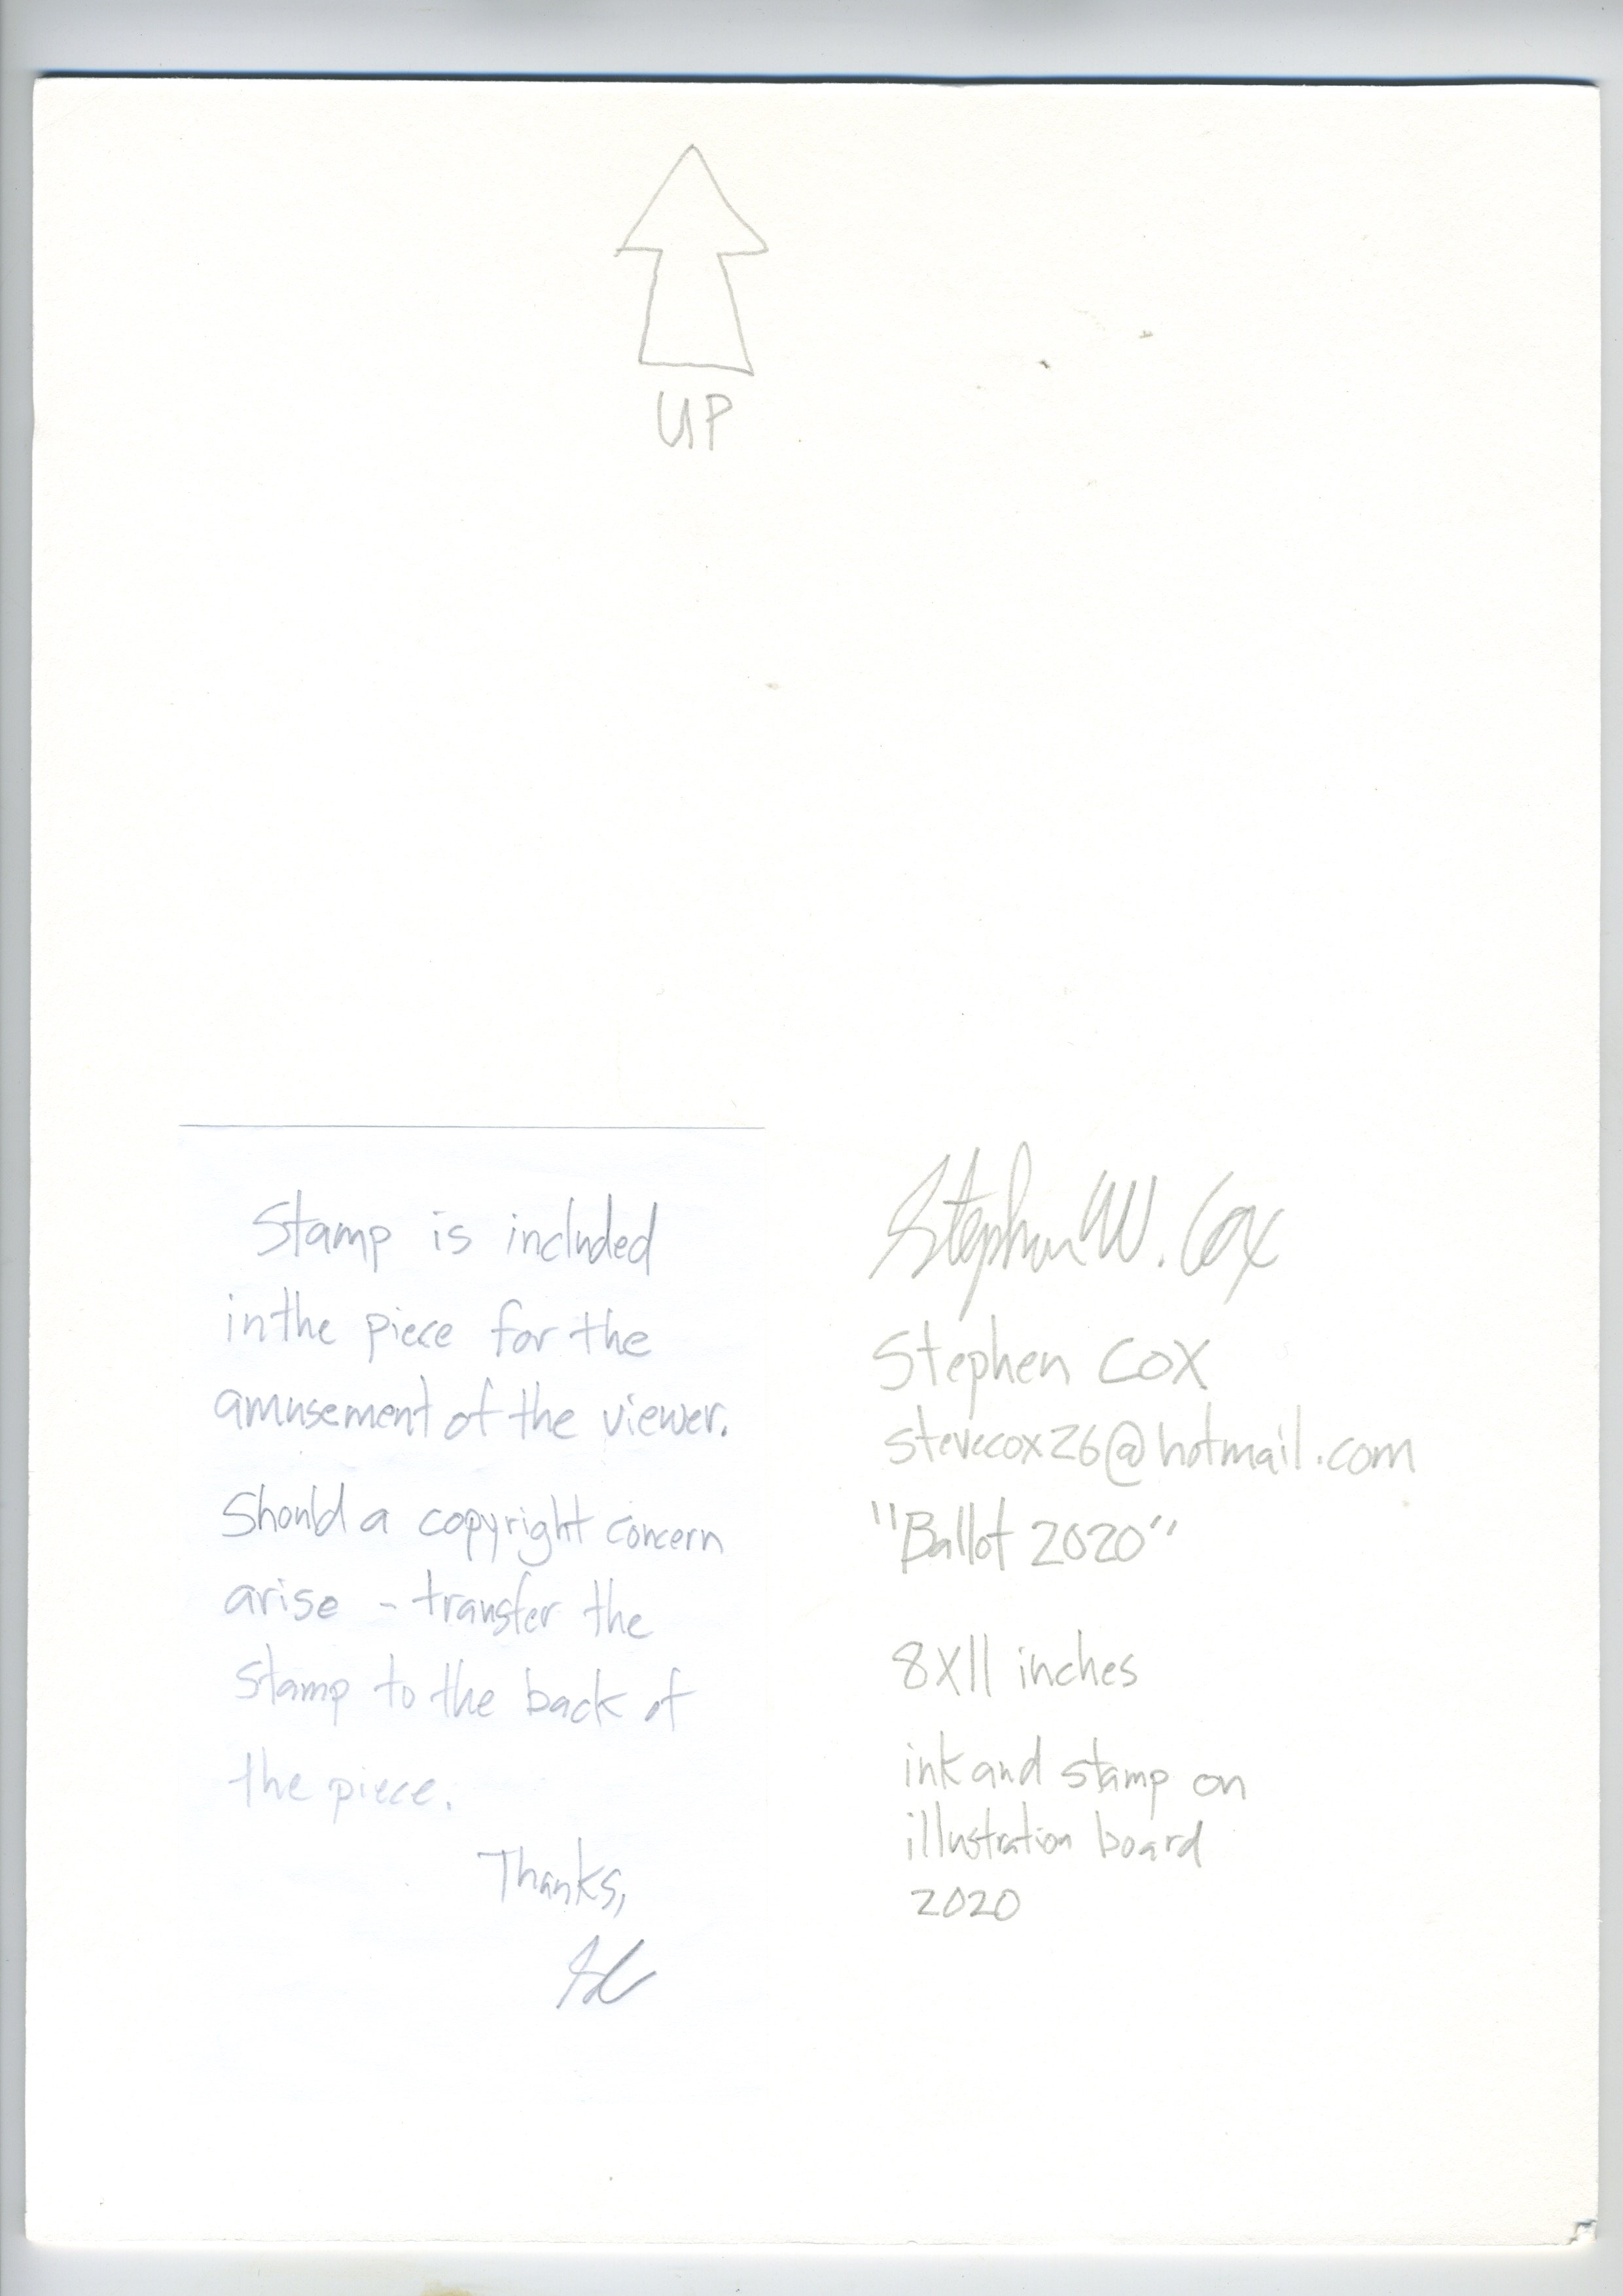 UP
Stamp is included
in the piece for the
amusement of the viewer.
Should a copyright concern
arise - transfer the
stamp to the back of
the piece.
Thanks,
SC
Stephen W. Cox
Stephen Cox
stevecox26@hotmail.com
"Ballot 2020"
8X11 inches
ink and stamp on
illustration board
2020